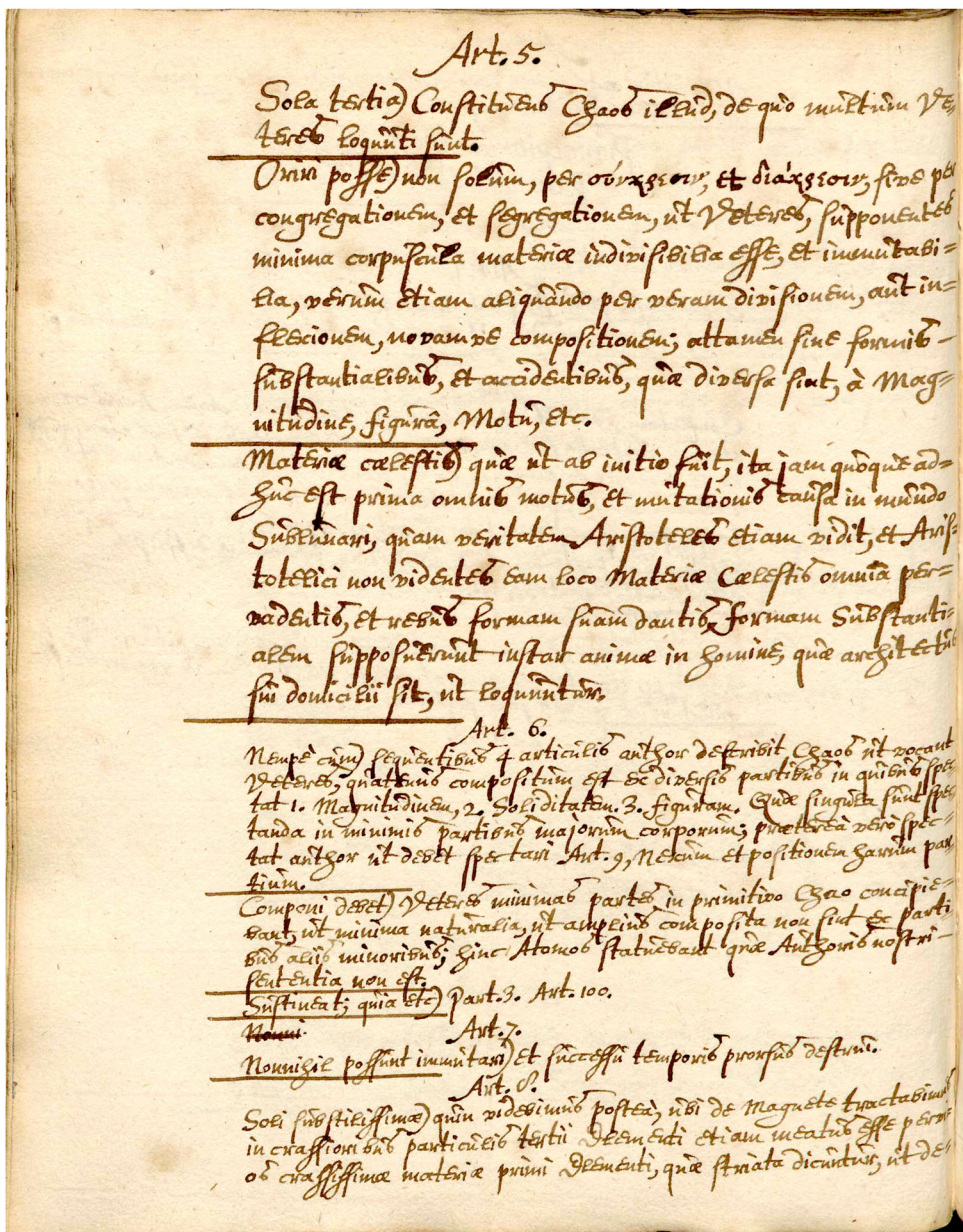 Art. 5.
Sola tertia) Constituens Chaos illud, de quo multum Ve=
teres loquuti sunt.
Oriri posse) non solum, per σύγκρισιν, et διάκρισιν, sive per
congregationem, et segregationem, ut Veteres, supponentes
minima corpuscula materiæ indivisibilia esse, et immutabi=
lia, verum etiam aliquando per veram divisionem, aut in=
flexionem, novamve compositionem; attamen sine formis –
substantialibus, et accidentibus, quæ diversa sint, à Mag=
nitudine, figurâ, Motu, etc.
Materiæ cælestis) quæ ut ab initio fuit, ita jam quoque ad=
huc est prima omnis motus, et mutationis causa in mundo
Sublunari, quam veritatem Aristoteles etiam vidit, et Aris=
totelici non videntes eam loco Materiæ Cælestis omnia per=
vadentis, et rebus formam suam dantis, formam Substanti=
alem supposuerunt instar animæ in homine, quæ architectus
sui domicilii sit, ut loquuntur.
Art. 6.
Nempè cùm) sequentibus 4 articulis author describit Chaos ut vocant
Veteres, quatenus compositum est ex diversis partibus in quibus spec=
tat 1. Magnitudinem, 2. Soliditatem. 3. figuram. Quæ singula sunt spec=
tanda in minimis partibus majorum corporum; prætereà verò spec=
tat author ut debet spectari Art. 9, Nexum et positionem harum par=
tium.
Componi debet) Veteres minimas partes in primitivo Chao concipie=
bant, ut minima naturalia, ut amplius composita non sint ex parti
bus aliis minoribus; hinc Atomos statuebant quæ Authoris nostri –
sententia non est.
Sustineat; quia etc) Part. 3. Art. 100.
Nonni.
Art. 7.
Nonnihil possunt immutari) et successu temporis prorsus destrui.
Art. 8.
Soli subtilissimæ) quin videbimus posteà, ubi de Magnete tractabimus
in crassioribus particulis tertii Elementi etiam meatus esse pervi=
os crassissimæ materiæ primi Elementi, quæ striata dicuntur, ut de=